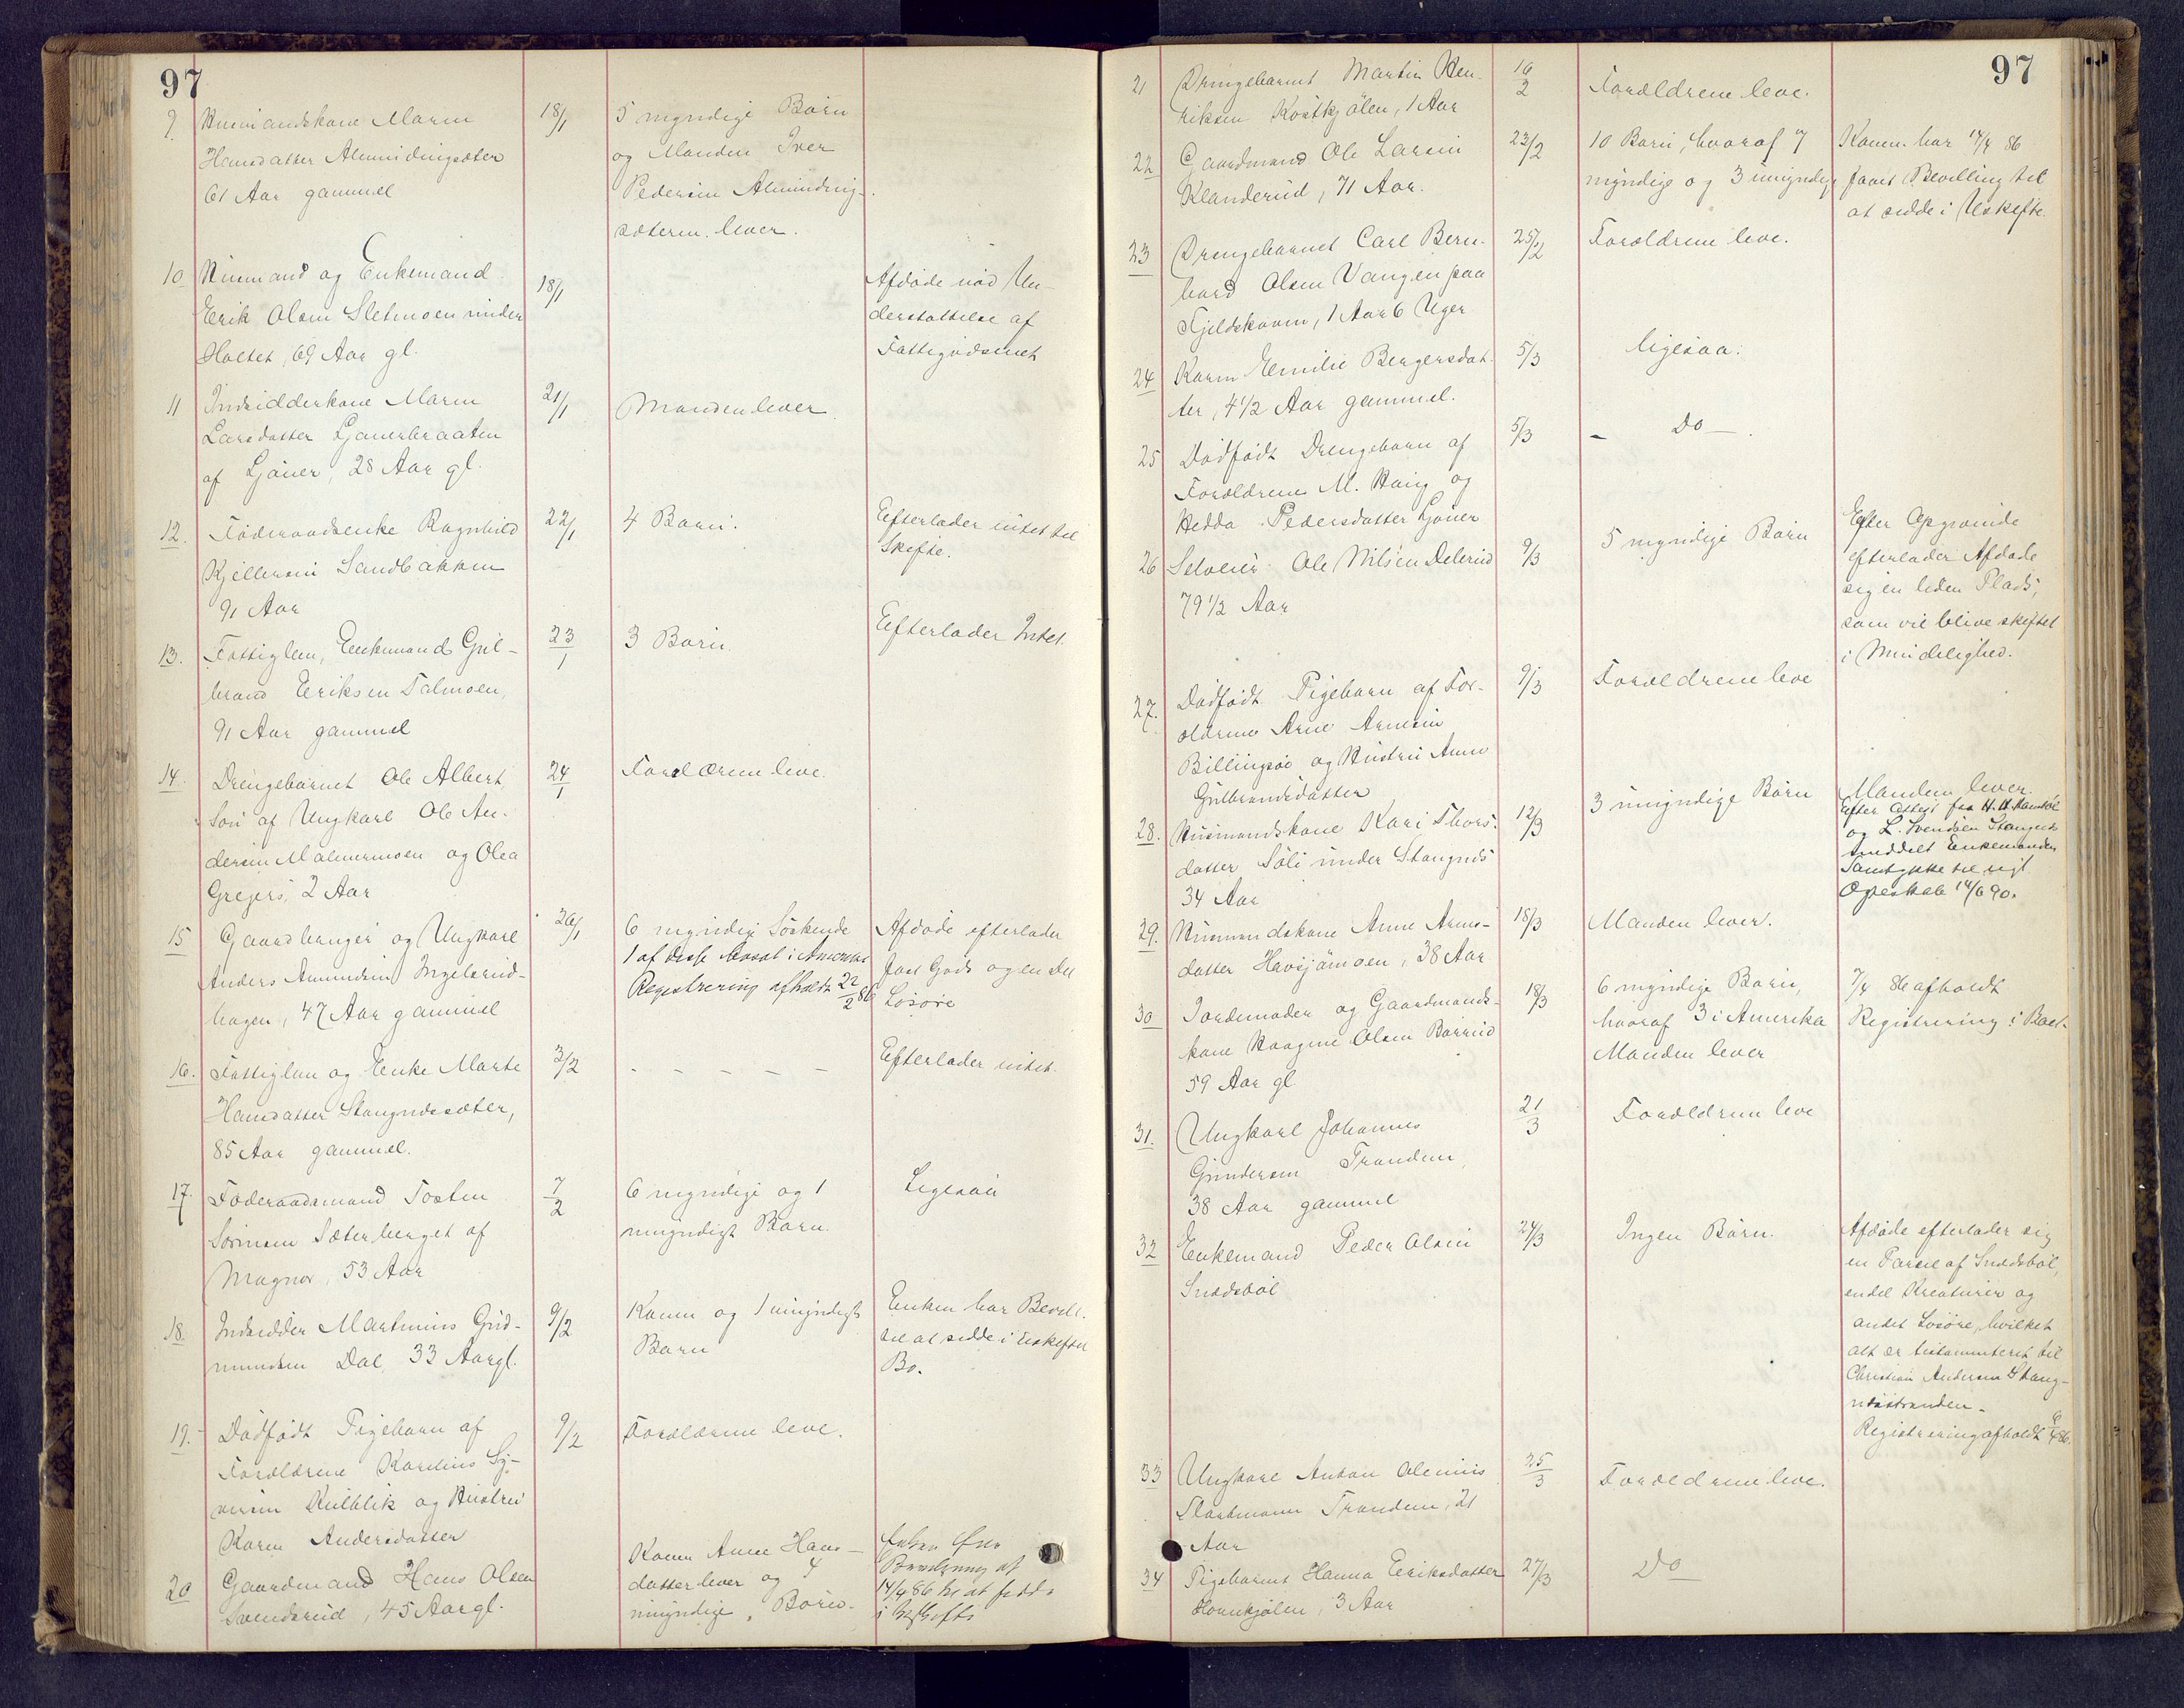 97
9. Husmandskone Maren 18/1 5 myndige Børn
Hansdatter Almindingsæter og Manden Iver
61 Aar gammel Pedersen Alminding-
sæteren lever.
10 Husmand og Enkemand 18/1 Afdøde nød Un-
Erik Olsen Sletmoen under derstøttelse af
Holtet, 69 Aar gl. Fattigvæsenet
11 Indsidderkone Maren 21/1 Manden lever
Larsdatter Gjøuerbraaten
af Gjøuer, 28 Aar gl.
12. Føderaadsenke Ragnhild 22/1 4 Børn. Efterlader intet til
Kjellersen Sandbakken Skifte.
91 Aar
13. Fattiglem, Enkemand Gul- 23/1 3 Børn Efterlader Intet.
brand Eriksen Talmoen,
91 Aar gammel
14. Drengebarnet Ole Albert 24/1 Forældrene leve.
Søn af Ungkarl Ole An-
dersen Malmermoen og Olea
Gregers, 2 Aar
15 Gaardbruger og Ungkarl 26/1 6 myndige Søskende Afdøde efterlader
Anders Amundsen Ingelsrud- 1 af disse bosat i Amerika fast Gods og en Del
hagen, 47 Aar gammel Registrering afholdt 22/2 86 Løsøre
16. Fattiglem og Enke Marte 3/2 - - - - - Efterlader intet.
Hansdatter Stangnessæter,
85 Aar gammel.
17. Føderaadsmand Tosten 7/2 6 myndige og 1 Ligesaa
Sørensen Sæterberget af umyndigt Barn.
Magnor, 53 Aar
18. Indsidder Martinius Gud- 9/2 Konen og 1 umyndigt Enken har Bevill.
mundsen Dal, 33 Aar gl. Barn til at sidde i Uskiftet
Bo.
19. Dødfødt Pigebarn af 9/2 Forældrene leve.
Forældrene Karelius Sy-
versen Kulblik og Hustru
Karen Andersdatter
20 Gaardmand Hans Olsen Konen Anne Hans- Enken
Svendsrud, 45 Aar gl. datter lever og 4 Bevilling af
umyndige Børn. 14/4 86 til at sidde
i Uskifte
97
21 Drengebarnet Martin Hen- 16/2 Forældrene leve.
riksen Kostkjølen, 1 Aar
22 Gaardmand Ole Larsen 23/2 10 Børn, hvoraf 7 Konen har 14/4 86
Klanderud, 71 Aar. myndige og 3 umyndige faaet Bevilling til
at sidde i Uskifte.
23 Drengebarnet Carl Bern- 25/2 Forældrene leve.
hard Olsen Vangen paa
Fjeldskoven, 1 Aar 6 Uger
24 Karen Emilie Bergersdat- 5/3 ligesaa.
ter, 4 1/2 Aar gammel.
25 Dødfødt Drengebarn af 5/3 - Do -
Forældrene M. Haug og
Hedda Pedersdatter Gjøuer
26 Selveier Ole Nilsen Delerud 9/3 5 myndige Børn Efter Opgivende
79 1/2 Aar efterlader Afdøde
sig en liden Plads,
som vil blive skiftet
i Mindelighed.
27. Dødfødt Pigebarn af For- 9/3 Forældrene leve
ældrene Arne Arnesen
Billingsøe og Hustru Anne
Gulbrandsdatter
28. Husmandskone Kari Thors- 12/3 3 umyndige Børn Manden lever.
datter Søli under Stangnes Efter Attest fra H. H.
34 Aar og L. Svendsen Stangnes
meddelt Enkemanden
Samtykke til nyt
Ægteskab 14/6 90.
29. Husmandskone Anne Arne- 18/3 Manden lever.
datter Havsjømoen, 38 Aar
30 Jordemoder og Gaardmands- 18/3 6 myndige Børn, 7/4 86 afholdt
kone Olsen Børrud hvoraf 3 i Amerika Registrering i Boet.
59 Aar gl. Manden lever
31. Ungkarl Johannes 21/3 Forældrene leve
Gundersen Trandem,
38 Aar gammel
32 Enkemand Peder Olsen 24/3 Ingen Børn. Afdøde efterlader sig
Snædsbøl en Parcel af Snædsbøl,
endel Kreaturer og
andet Løsøre, hvilket
alt er testamenteret til
Christian Andersen Stang-
næsstranden.
Registrering afholdt 6/4 86.
33 Ungkarl Anton Olenius 25/3 Forældrene leve.
Slaatmoen Trandem, 21
Aar
34 Pigebarnet Hanna Eriksdatter 27/3 Do
Hornkjølen, 3 Aar